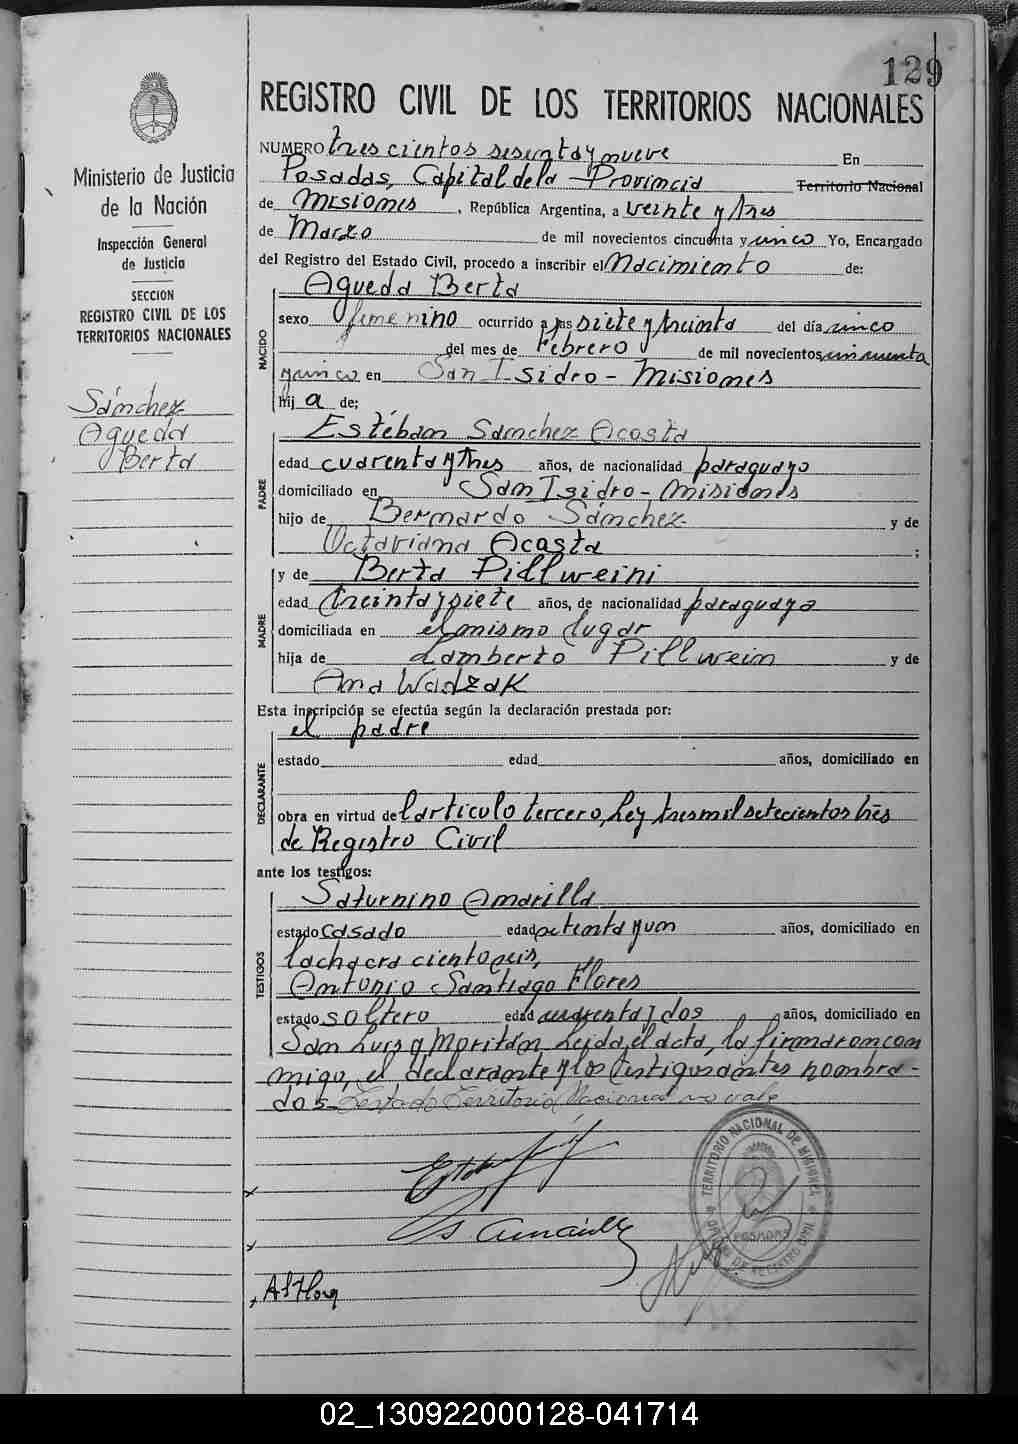 129
REGISTRO CIVIL DE LOS TERRITORIOS NACIONALES
Ministerio de Justicia
de la Nación
Inspección General
de Justicia
SECCION
REGISTRO CIVIL DE LOS
TERRITORIOS NACIONALES
Sánchez
Agueda
Berta
NUMERO tres cientos sesenta y nueve En
Posadas, Capital de la Provincia Territorio Nacional
de Misiones, República Argentina, a veinte y tres
de Marzo de mil novecientos cincuenta y cinco Yo, Encargado
del Registro del Estado Civil, procedo a inscribir el Nacimiento de:
NACIDO
Agueda Berta
sexo femenino ocurrido a las siete y treinta del día cinco
del mes de Febrero de mil novecientos cincuenta
y cinco en San Isidro - Misiones
hij a de;
PADRE
Estéban Sánchez Acosta
edad cuarenta y tres años, de nacionalidad paraguayo
domiciliado en San Isidro - Misiones
hijo de Bernardo Sánchez y de
Octaviana Acosta ;
MADRE
y de Berta Pillweini
edad treinta y siete años, de nacionalidad paraguaya
domiciliada en el mismo lugar
hija de Lamberto Pillwein y de
Ana Wadzak
Esta inscripción se efectúa según la declaración prestada por:
DECLARANTE
el padre
estado edad años, domiciliado en
obra en virtud del articulo tercero, Ley tres mil setecientos tres
de Registro Civil
ante los testigos:
TESTIGOS
Saturnino Amarilla
estado casado edad setenta y un años, domiciliado en
la chacra ciento seis,
Antonio Santiago Flores
estado soltero edad cuarenta y dos años, domiciliado en
San Luis y Moritán, Leida, el acta, la firmaron con
migo, el declarante y los testigos antes nombra-
dos - Testado Territorio Nacional no vale
S. Amarilla
A S Flores
TERRITORIO NACIONAL DE MISIONES
POSADAS
OFICINA DE REGISTRO CIVIL
02_130922000128-041714